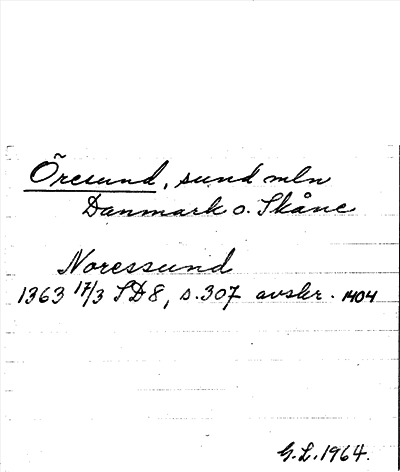 Öresund, sund mln
Danmark o. Skåne
Noressund
1363 17/3 SD 8, s. 307 avskr. 1404
G. L. 1964.